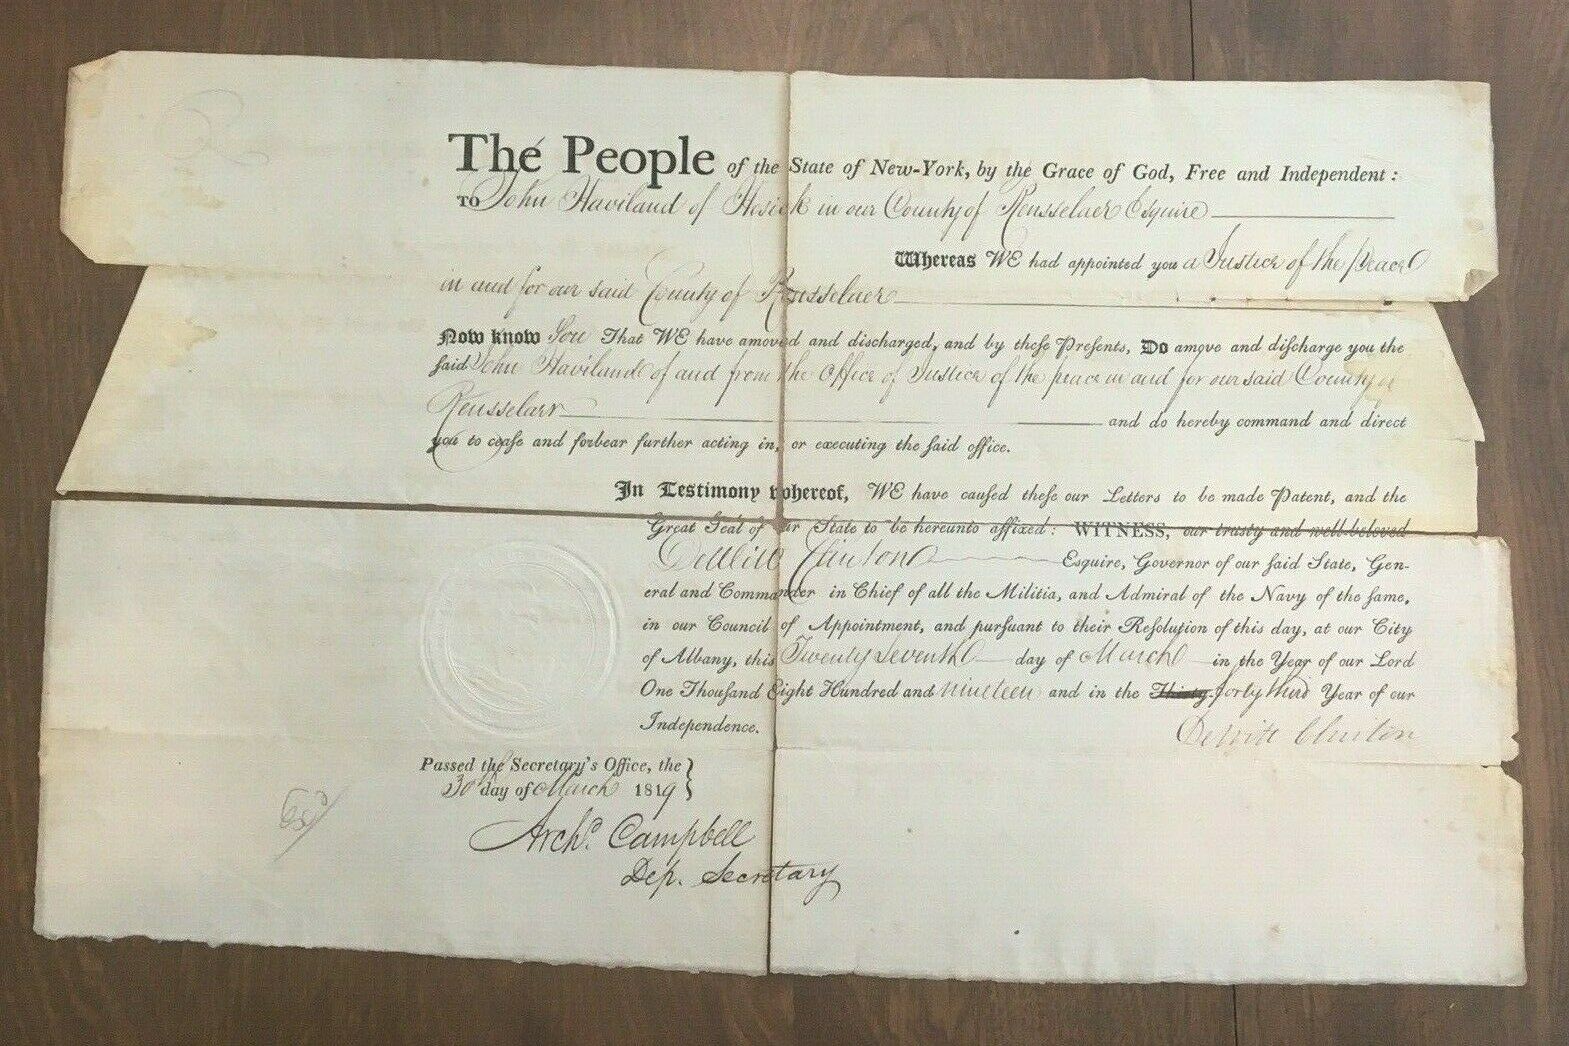 The People of the State of New-York, by the Grace of God, Free and Independent:
TO John Haviland of Hosick in our County of Rensselaer Esquire
Whereas WE had appointed you a Justice of the peace
in and for our said County of Rensselaer
Now know You That WE have amoved and discharged, and by theſe Preſents, Do amove and diſcharge you the
ſaid John Haviland of and from the Office of Justice of the peace in and for our said County of
Rensselaer and do hereby command and direct
you to ceaſe and forbear further acting in, or executing the ſaid office.
In Testimony whereof, WE have cauſed theſe our Letters to be made Patent, and the
Great Seal of our State to be hereunto affixed: WITNESS, our truſty and well-beloved
DeWitt Clinton Esquire, Governor of our ſaid State, Gen-
eral and Commander in Chief of all the Militia, and Admiral of the Navy of the ſame,
in our Council of Appointment, and purſuant to their Reſolution of this day, at our City
of Albany, this Twenty Seventh day of March in the Year of our Lord
One Thouſand Eight Hundred and nineteen and in the Thirty-forty third Year of our
Independence.
DeWitt Clinton
Passed the Secretary's Office, the
30th day of March 1819
Archd. Campbell
Dep. Secretary